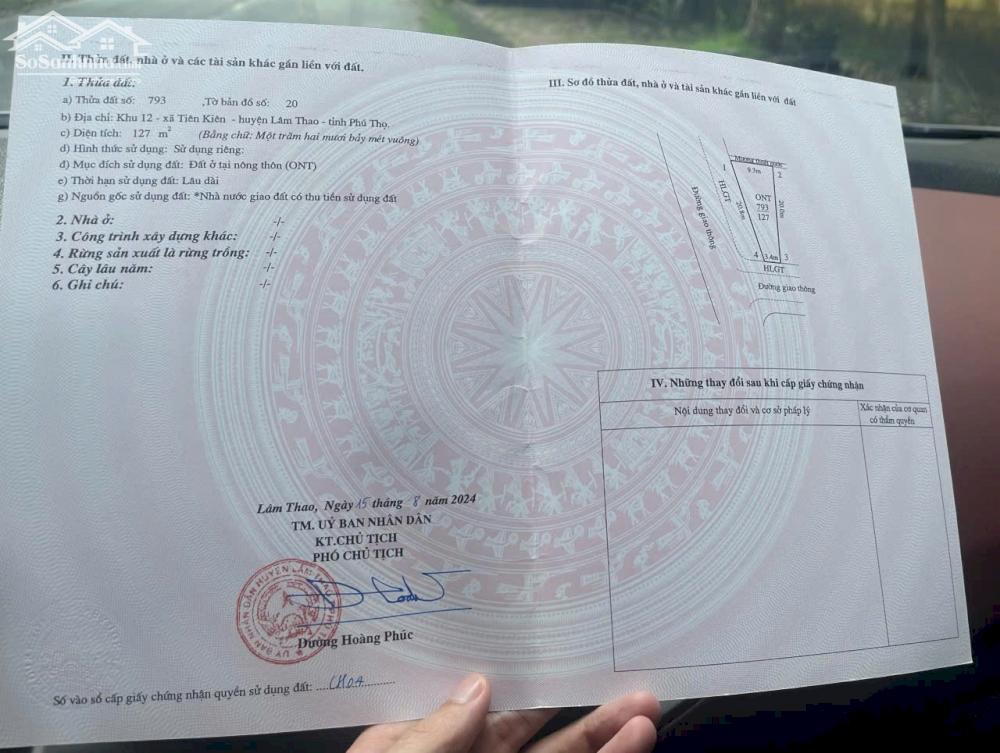 SoSanhNha.com
II. Thửa đất, nhà ở và các tài sản khác gắn liền với đất.
1. Thửa đất:
a) Thửa đất số: 793 ,Tờ bản đồ số: 20
b) Địa chỉ: Khu 12 - xã Tiên Kiên - huyện Lâm Thao - tỉnh Phú Thọ.
c) Diện tích: 127 m² (Bằng chữ: Một trăm hai mươi bảy mét vuông)
d) Hình thức sử dụng: Sử dụng riêng:
đ) Mục đích sử dụng đất: Đất ở tại nông thôn (ONT)
e) Thời hạn sử dụng đất: Lâu dài
g) Nguồn gốc sử dụng đất: *Nhà nước giao đất có thu tiền sử dụng đất
2. Nhà ở: -/-
3. Công trình xây dựng khác: -/-
4. Rừng sản xuất là rừng trồng: -/-
5. Cây lâu năm: -/-
6. Ghi chú: -/-
Lâm Thao, Ngày 15 tháng 8 năm 2024
TM. UỶ BAN NHÂN DÂN
KT.CHỦ TỊCH
PHÓ CHỦ TỊCH
Dương Hoàng Phúc
Số vào sổ cấp giấy chứng nhận quyền sử dụng đất: ....CH04..........
III. Sơ đồ thửa đất, nhà ở và tài sản khác gắn liền với đất
Mương thoát nước
1
9.3m
2
HLGT
20.8m
ONT
793
127
20.0m
Đường giao thông
4
3.4m
3
HLGT
Đường giao thông
IV. Những thay đổi sau khi cấp giấy chứng nhận
Nội dung thay đổi và cơ sở pháp lý
Xác nhận của cơ quan
có thẩm quyền